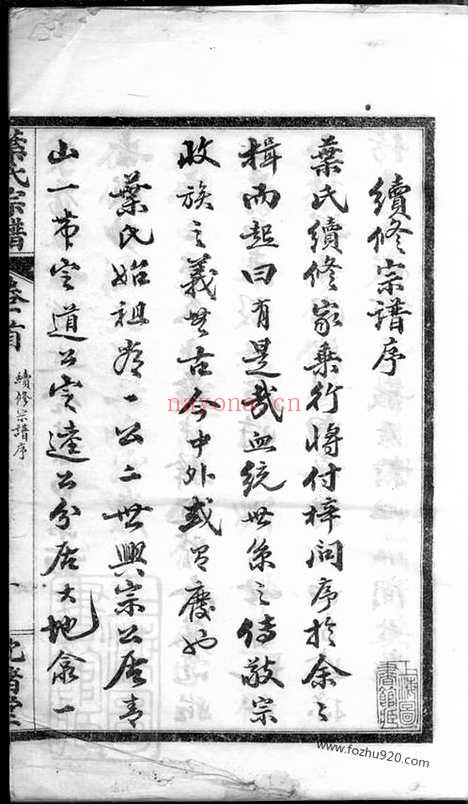 續修宗譜序
葉氏續修家乘行將付梓問序於余々
揖而起曰有是哉血統世系之傳敬宗
收族之義無古今中外或可廢也
葉氏始祖
一公二世興宗公居青
山一帶定道公定逵公分居大地
一
葉氏宗譜
卷首
續修宗譜序
一
nayona.cn
上海圖書館藏
www.fozhu920.com